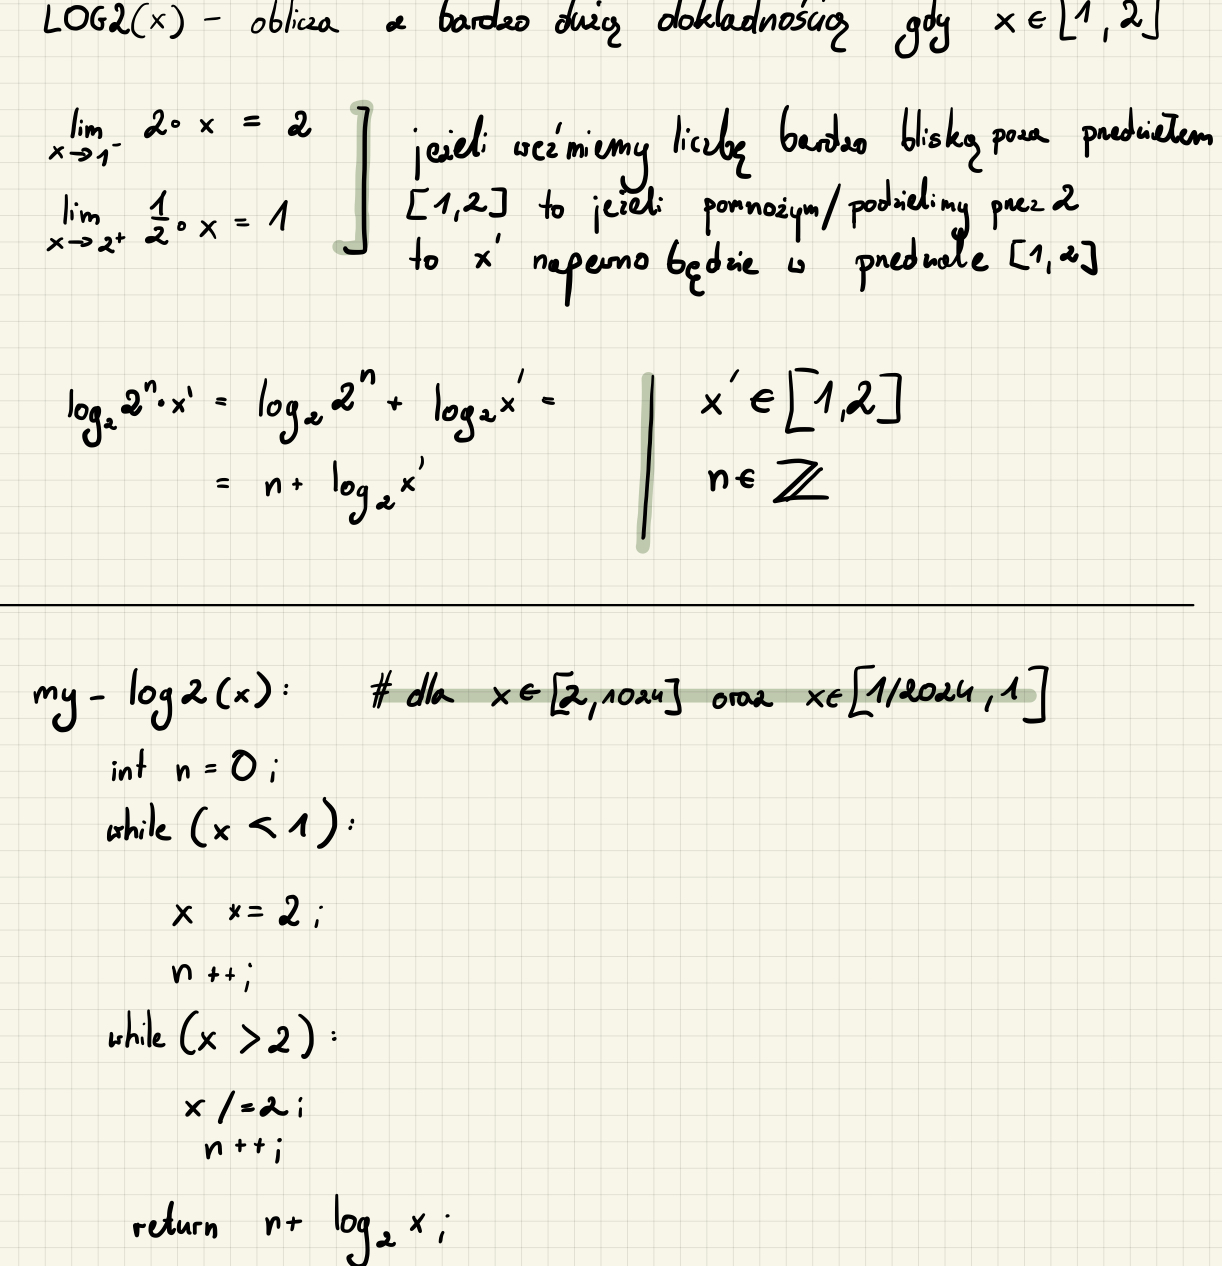 LOG2(x) - oblicza z bardzo dużą dokładnością gdy x ∈ [1, 2]
lim x→1⁻ 2∘ x = 2
lim x→2⁺ 1/2 ∘ x = 1
jeżeli weźmiemy liczbę bardzo bliską poza przedziełem
[1,2] to jeżeli pomnożym/podzielimy przez 2
to x' napewno będzie w przedziale [1,2]
log₂2ⁿ·x' = log₂2ⁿ + log₂x' =
= n + log₂x'
x' ∈ [1,2]
n ∈ ℤ
my-log2(x): # dla x ∈ [2,1024] oraz x∈[1/2024,1]
int n = 0;
while (x < 1):
x *= 2;
n ++;
while (x > 2):
x /=2;
n ++;
return n+ log₂ x;